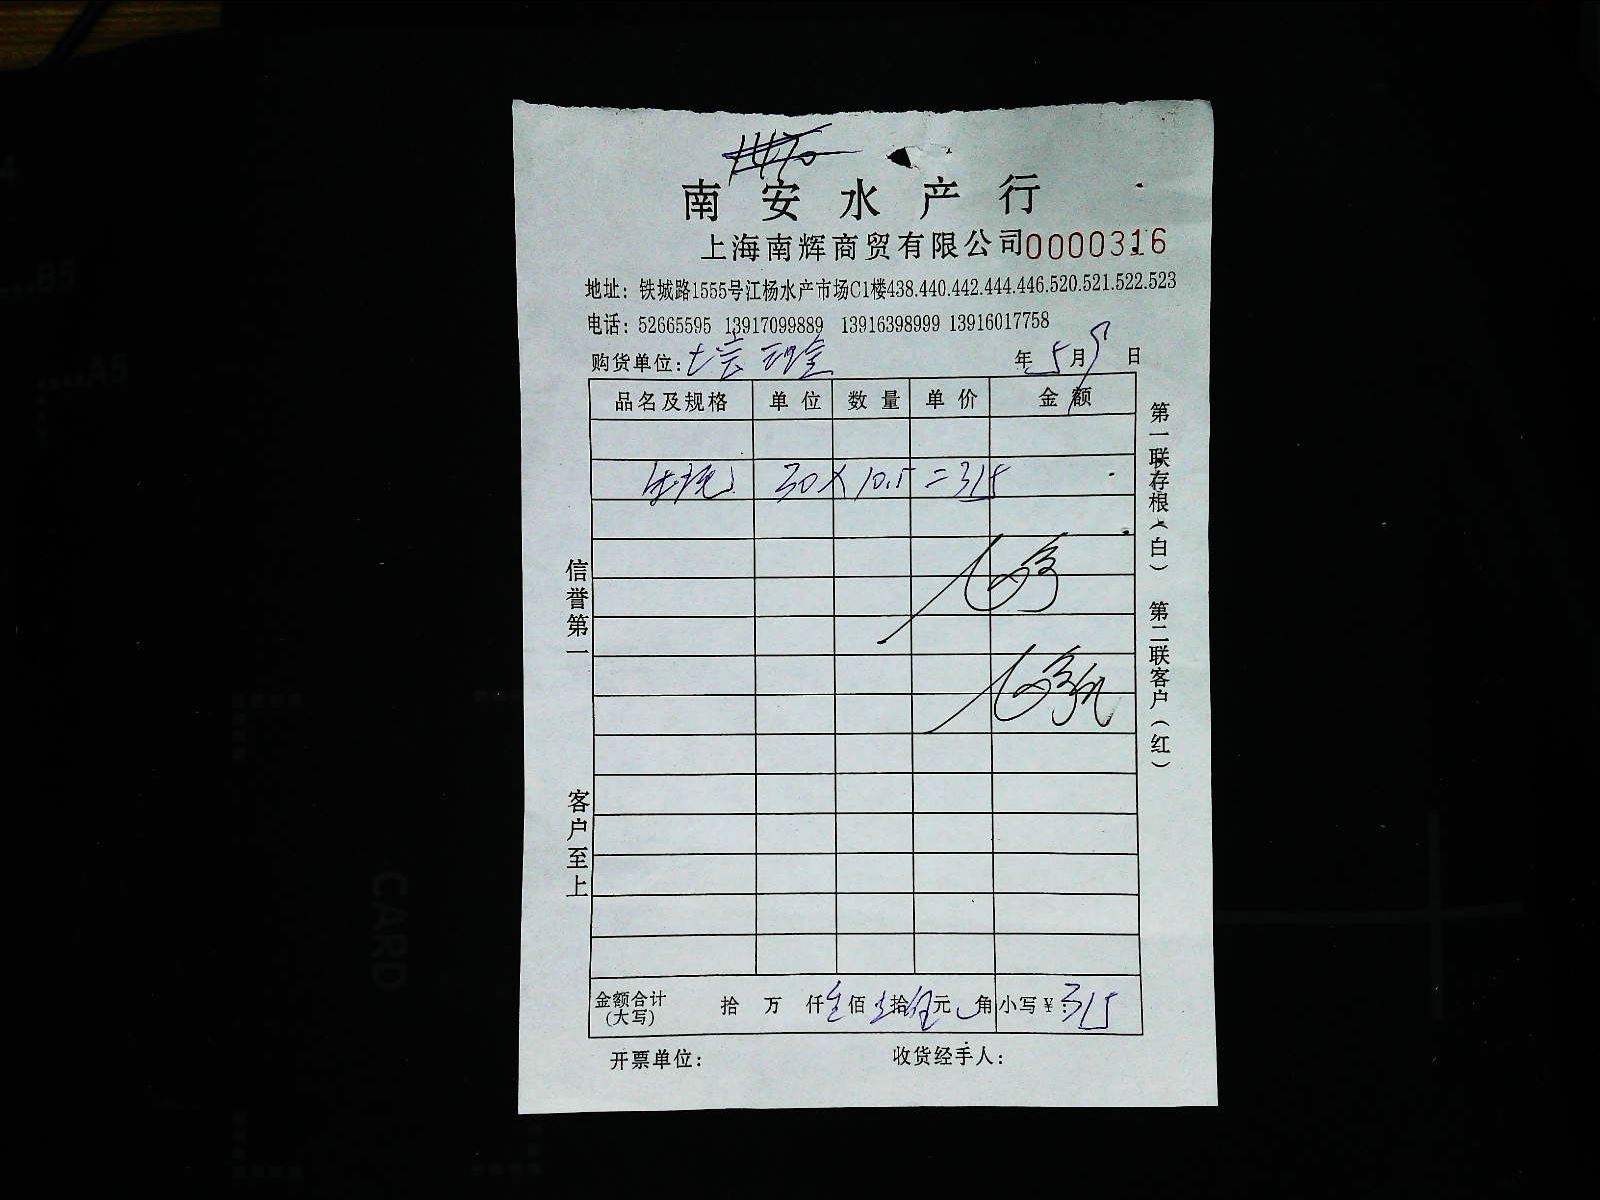 南安水产行
上海南辉商贸有限公司0000316
地址：铁城路1555号江杨水产市场C1楼438.440.442.444.446.520.521.522.523
电话：52665595 13917099889 13916398999 13916017758
购货单位： 年5月9日
品名及规格 单位 数量 单价 金额
30×10.5=315
信誉第一 客户至上
第一联存根（白） 第二联客户（红）
金额合计（大写） 拾 万 仟 佰 拾 元 角 小写¥：315
开票单位： 收货经手人：
CARD